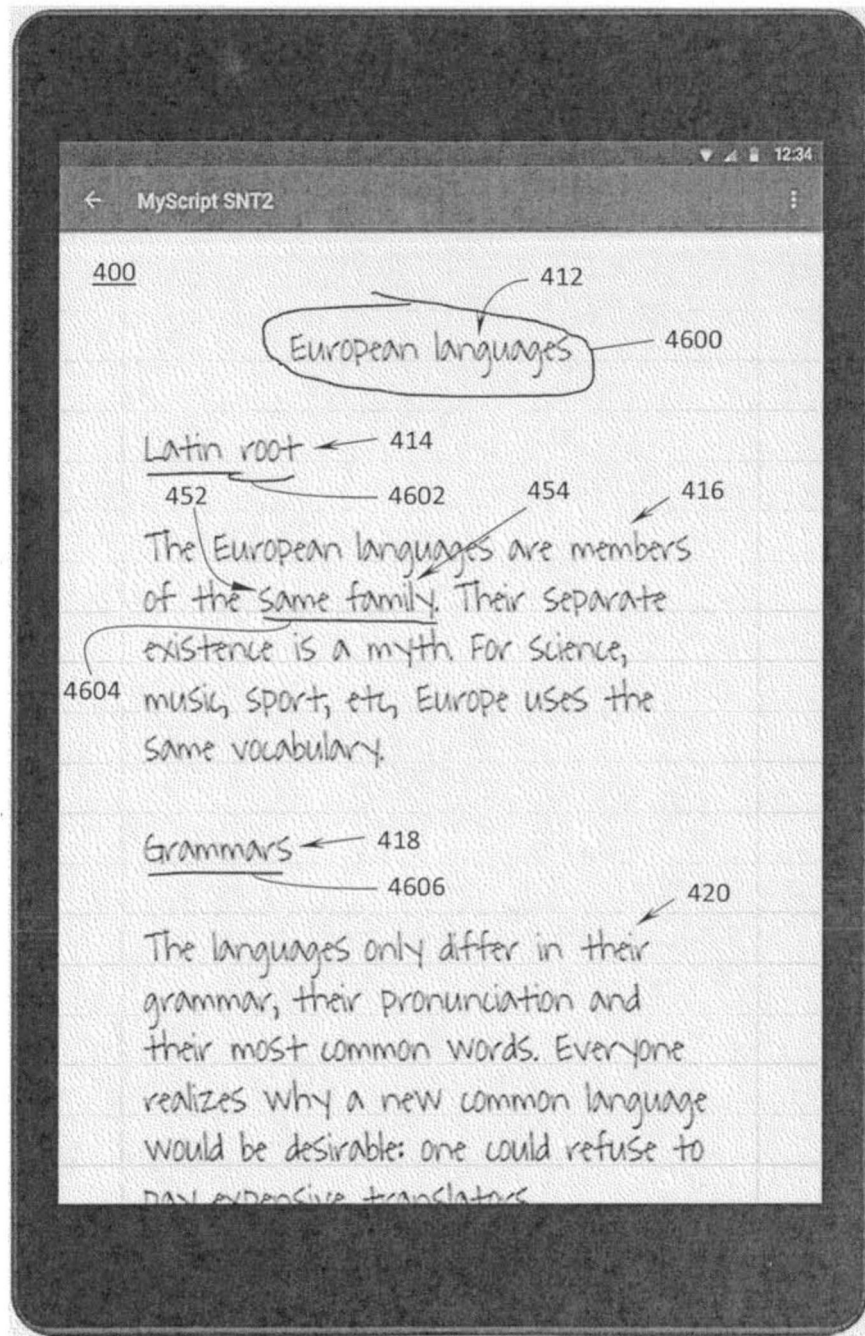 12:34
← MyScript SNT2
400
412
European languages
4600
Latin root
414
452
4602
454
416
The European languages are members
of the same family. Their separate
existence is a myth. For science,
4604
music, sport, etc, Europe uses the
same vocabulary.
Grammars
418
4606
420
The languages only differ in their
grammar, their pronunciation and
their most common words. Everyone
realizes why a new common language
would be desirable: one could refuse to
pay expensive translators